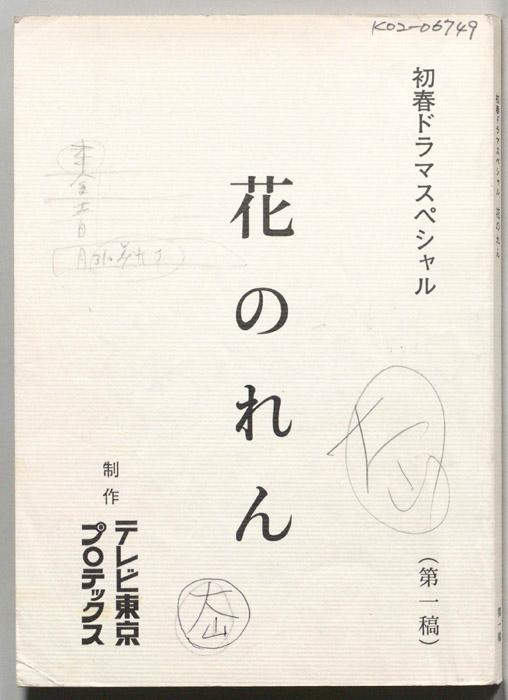 K02-06749
初春ドラマスペシャル
花のれん
(第一稿)
制作
テレビ東京
プロテックス
大山
大山
初春ドラマスペシャル 花のれん
第一稿